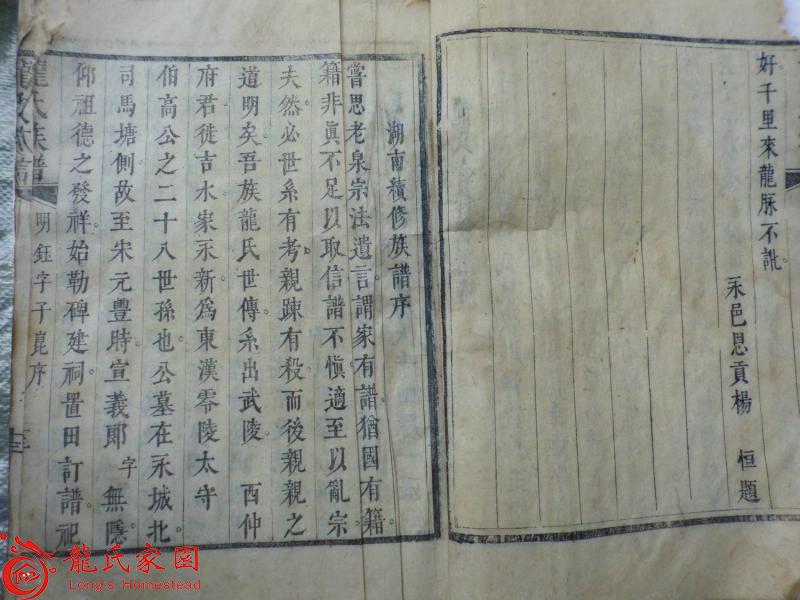 好千里來龍脉不訛。
永邑思貢楊　恒題
湖南續修族譜序
嘗思老泉宗法遺言。謂家有譜。猶國有籍。
籍非眞不足以取信。譜不愼。適至以亂宗。
夫然。必世系有考。親踈有殺。而後親親之
道明矣。吾族龍氏世傳。系出武陵。　酉仲
府君。徙吉水。家永新。爲東漢零陵太守
伯高公之二十八世孫也。公墓在永城北。
司馬塘側。故至宋元豐時。宣義郎　字　無隱。
仰祖德之發祥。始勒碑建祠。置田訂譜。祀
龍氏族譜
明鈺字子崑序
三
龍氏家園
Long's Homestead